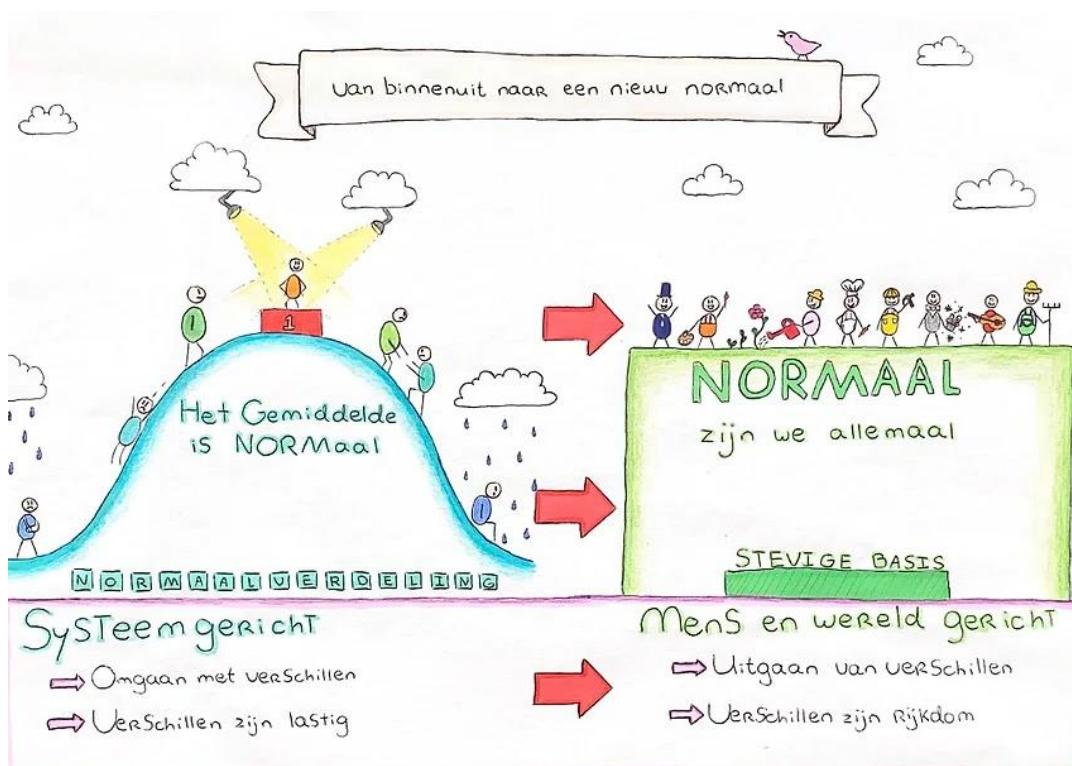 Van binnenuit naar een nieuw normaal
1
Het Gemiddelde
is NORMaal
NORMAALVERDELING
NORMAAL
zijn we allemaal
STEVIGE BASIS
Systeemgericht
Omgaan met verschillen
Verschillen zijn lastig
Mens en wereld gericht
Uitgaan van verschillen
Verschillen zijn Rijkdom